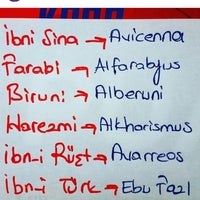 İbni Sina → Avicenna
Farabi → Alfarabyus
Biruni → Alberuni
Harezmi → Alkharismus
İbn-i Rüşt → Avarreos
İbn-i Türk → Ebu Fazl